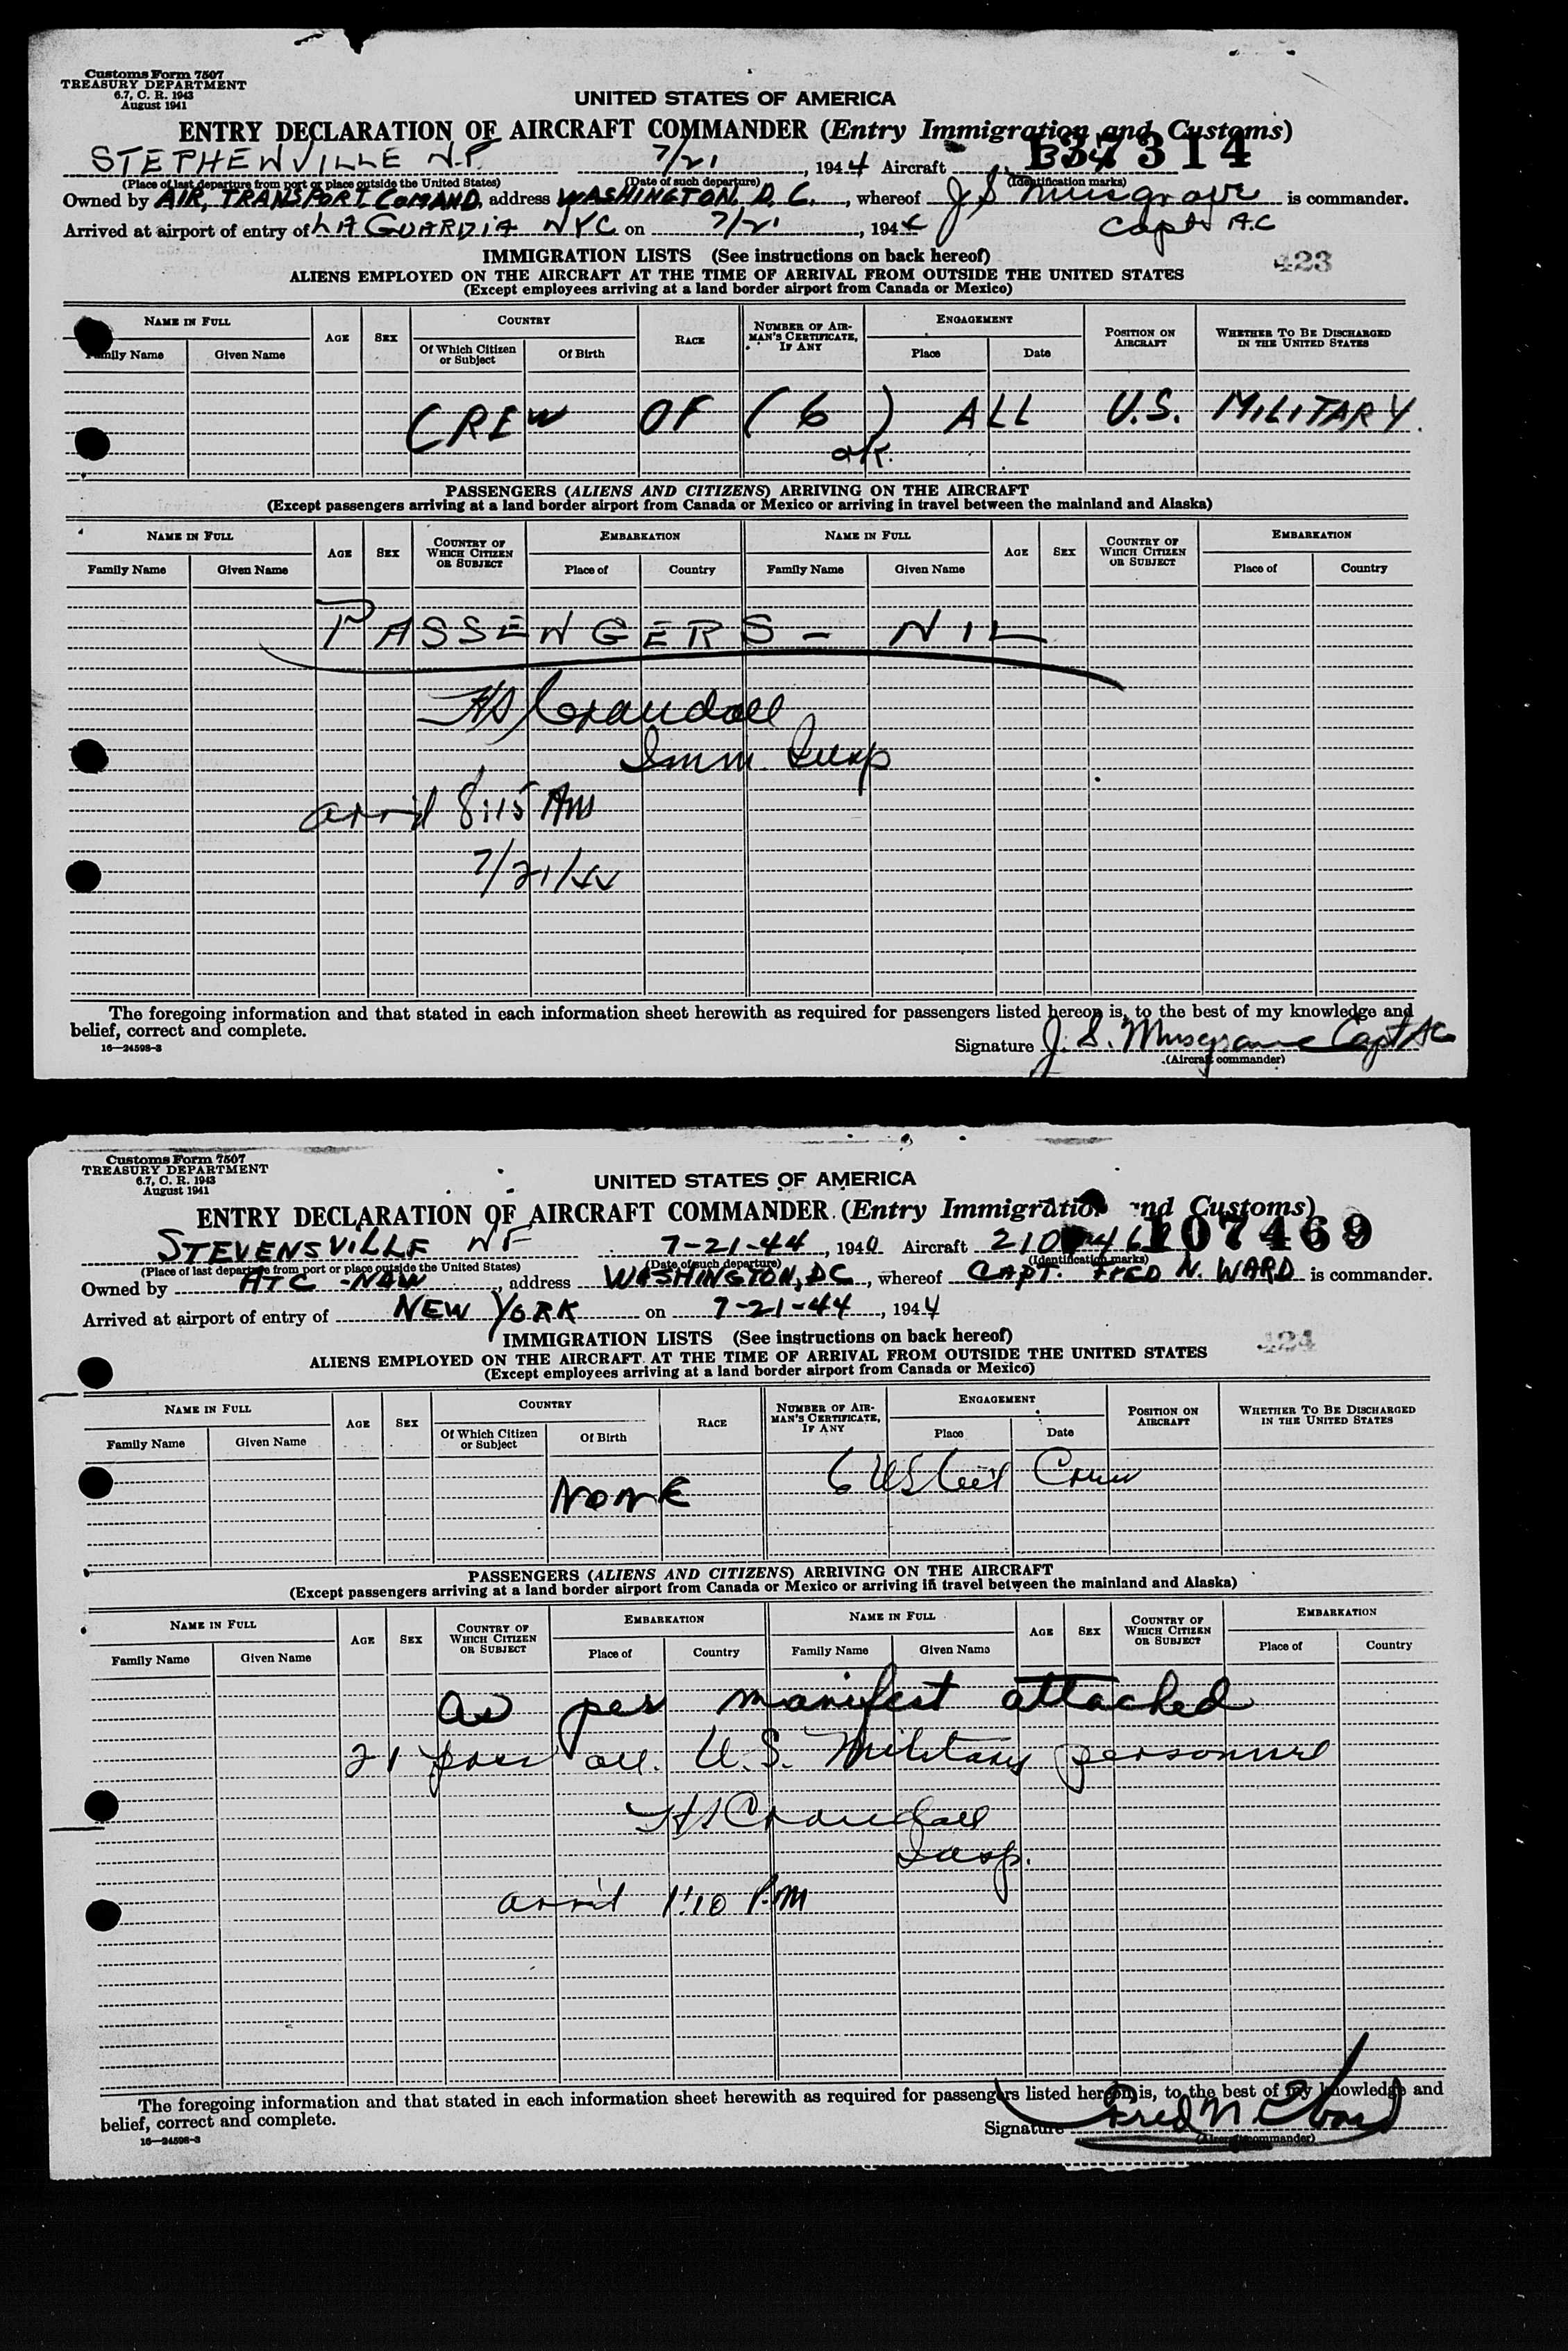 Customs Form 7507
TREASURY DEPARTMENT
6.7, C. R. 1943
August 1941
UNITED STATES OF AMERICA
ENTRY DECLARATION OF AIRCRAFT COMMANDER (Entry Immigration and Customs)
37314
STEPHENVILLE N.F. 7/21, 1944 Aircraft
(Place of last departure from port or place outside the United States) (Date of such departure) (Identification marks)
Owned by AIR, TRANSPORT COMAND, address WASHINGTON, D. C., whereof J S Musgrave is commander.
Arrived at airport of entry of LA GUARDIA NYC on 7/21, 1944 Capt A.C
IMMIGRATION LISTS (See instructions on back hereof)
423
ALIENS EMPLOYED ON THE AIRCRAFT AT THE TIME OF ARRIVAL FROM OUTSIDE THE UNITED STATES
(Except employees arriving at a land border airport from Canada or Mexico)
NAME IN FULL AGE SEX COUNTRY RACE NUMBER OF AIRMAN'S CERTIFICATE, IF ANY ENGAGEMENT POSITION ON AIRCRAFT WHETHER TO BE DISCHARGED IN THE UNITED STATES
Family Name Given Name Of Which Citizen or Subject Of Birth Place Date
CREW OF (6) ALL U.S. MILITARY.
OK.
PASSENGERS (ALIENS AND CITIZENS) ARRIVING ON THE AIRCRAFT
(Except passengers arriving at a land border airport from Canada or Mexico or arriving in travel between the mainland and Alaska)
NAME IN FULL AGE SEX COUNTRY OF WHICH CITIZEN OR SUBJECT EMBARKATION NAME IN FULL AGE SEX COUNTRY OF WHICH CITIZEN OR SUBJECT EMBARKATION
Family Name Given Name Place of Country Family Name Given Name Place of Country
PASSENGERS - NIL
HS Crandall
Imm. Insp
arr'd 8:15 AM
7/21/44
The foregoing information and that stated in each information sheet herewith as required for passengers listed hereon is, to the best of my knowledge and
belief, correct and complete.
16—24598-3
Signature J. S. Musgrave Capt AC
(Aircraft commander)
Customs Form 7507
TREASURY DEPARTMENT
6.7, C. R. 1943
August 1941
UNITED STATES OF AMERICA
ENTRY DECLARATION OF AIRCRAFT COMMANDER (Entry Immigration and Customs)
107469
STEVENSVILLE NF 7-21-44, 194 Aircraft
(Place of last departure from port or place outside the United States) (Date of such departure) (Identification marks)
Owned by ATC - NAW, address WASHINGTON, DC, whereof CAPT. FRED N. WARD is commander.
Arrived at airport of entry of NEW YORK on 7-21-44, 1944
IMMIGRATION LISTS (See instructions on back hereof)
424
ALIENS EMPLOYED ON THE AIRCRAFT AT THE TIME OF ARRIVAL FROM OUTSIDE THE UNITED STATES
(Except employees arriving at a land border airport from Canada or Mexico)
NAME IN FULL AGE SEX COUNTRY RACE NUMBER OF AIRMAN'S CERTIFICATE, IF ANY ENGAGEMENT POSITION ON AIRCRAFT WHETHER TO BE DISCHARGED IN THE UNITED STATES
Family Name Given Name Of Which Citizen or Subject Of Birth Place Date
6 US Crew
NONE
PASSENGERS (ALIENS AND CITIZENS) ARRIVING ON THE AIRCRAFT
(Except passengers arriving at a land border airport from Canada or Mexico or arriving in travel between the mainland and Alaska)
NAME IN FULL AGE SEX COUNTRY OF WHICH CITIZEN OR SUBJECT EMBARKATION NAME IN FULL AGE SEX COUNTRY OF WHICH CITIZEN OR SUBJECT EMBARKATION
Family Name Given Name Place of Country Family Name Given Name Place of Country
As per manifest attached
21 pass all. U.S. Military personnel
HS Crandall
Insp.
arr'd 1:10 P.M
The foregoing information and that stated in each information sheet herewith as required for passengers listed hereon is, to the best of my knowledge and
belief, correct and complete.
16—24598-3
Signature Fred N. Ward
(Aircraft commander)